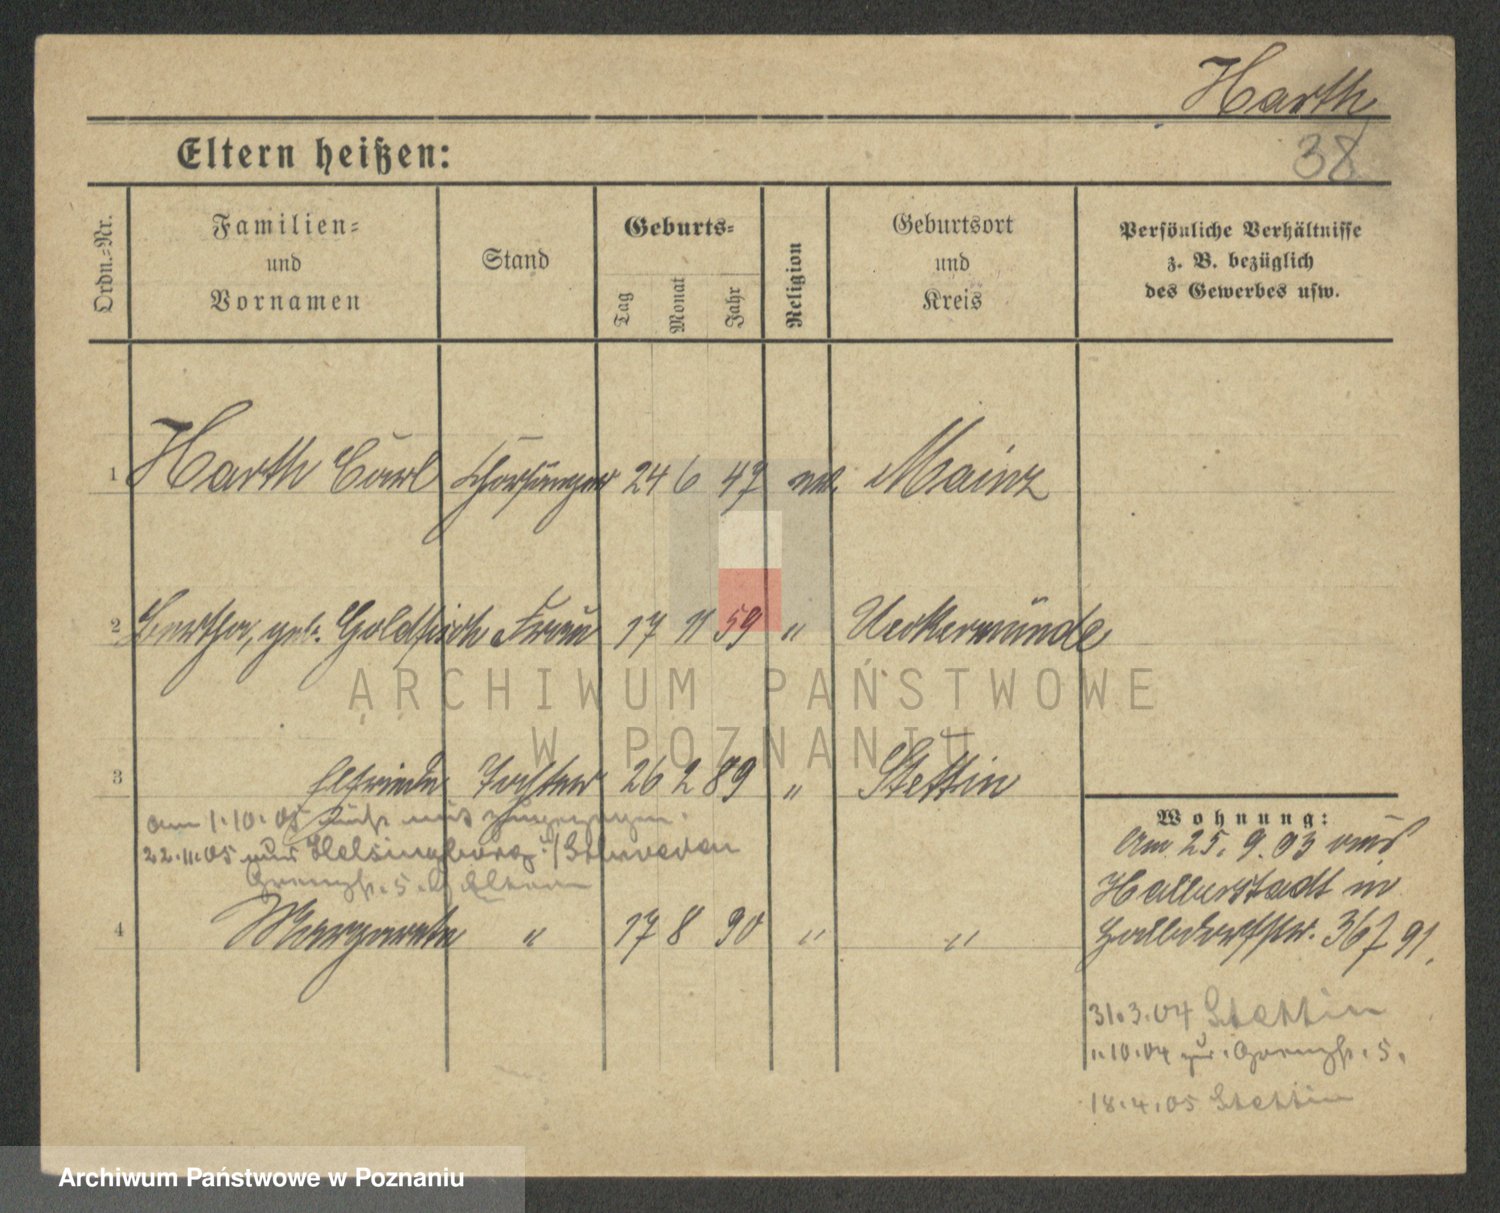 Harth
38
Eltern heißen:
Ordn.-Nr.
Familien-
und
Vornamen
Stand
Geburts-
Tag
Monat
Jahr
Religion
Geburtsort
und
Kreis
Persönliche Verhältnisse
z. B. bezüglich
des Gewerbes usw.
1 Harth Carl Chorsänger 24 6 47 Mainz
2 Bertha, geb. Goldfisch Frau 17 11 59 " Ueckermünde
3 Elfriede Tochter 26 2 89 " Stettin
am 1.10.05 mit zugezogen.
22.11.05 Helsingborg i/Schweden
Grenzstr. 5 Eltern
4 Margarete " 17 8 90 " "
Wohnung:
Am 25. 9. 03 aus
Halberstadt in
36/91.
31.3.04 Stettin
1.10.04 zur. Grenzstr. 5.
18.4.05 Stettin
ARCHIWUM PAŃSTWOWE
W POZNANIU
Archiwum Państwowe w Poznaniu